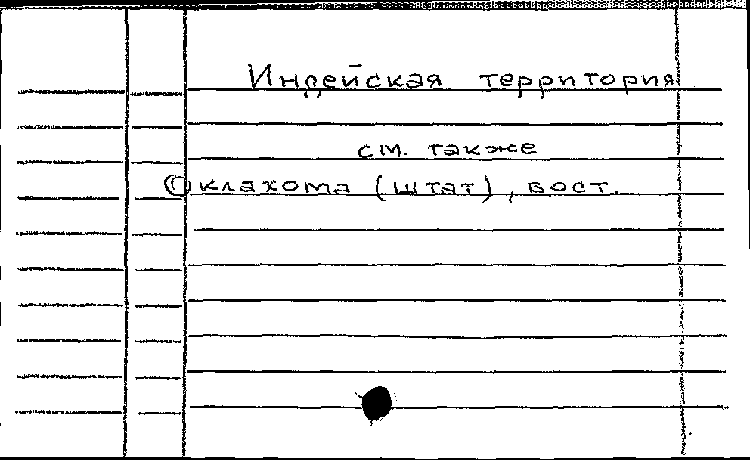 Индейская территория
см. также
Оклахома (штат), вост.